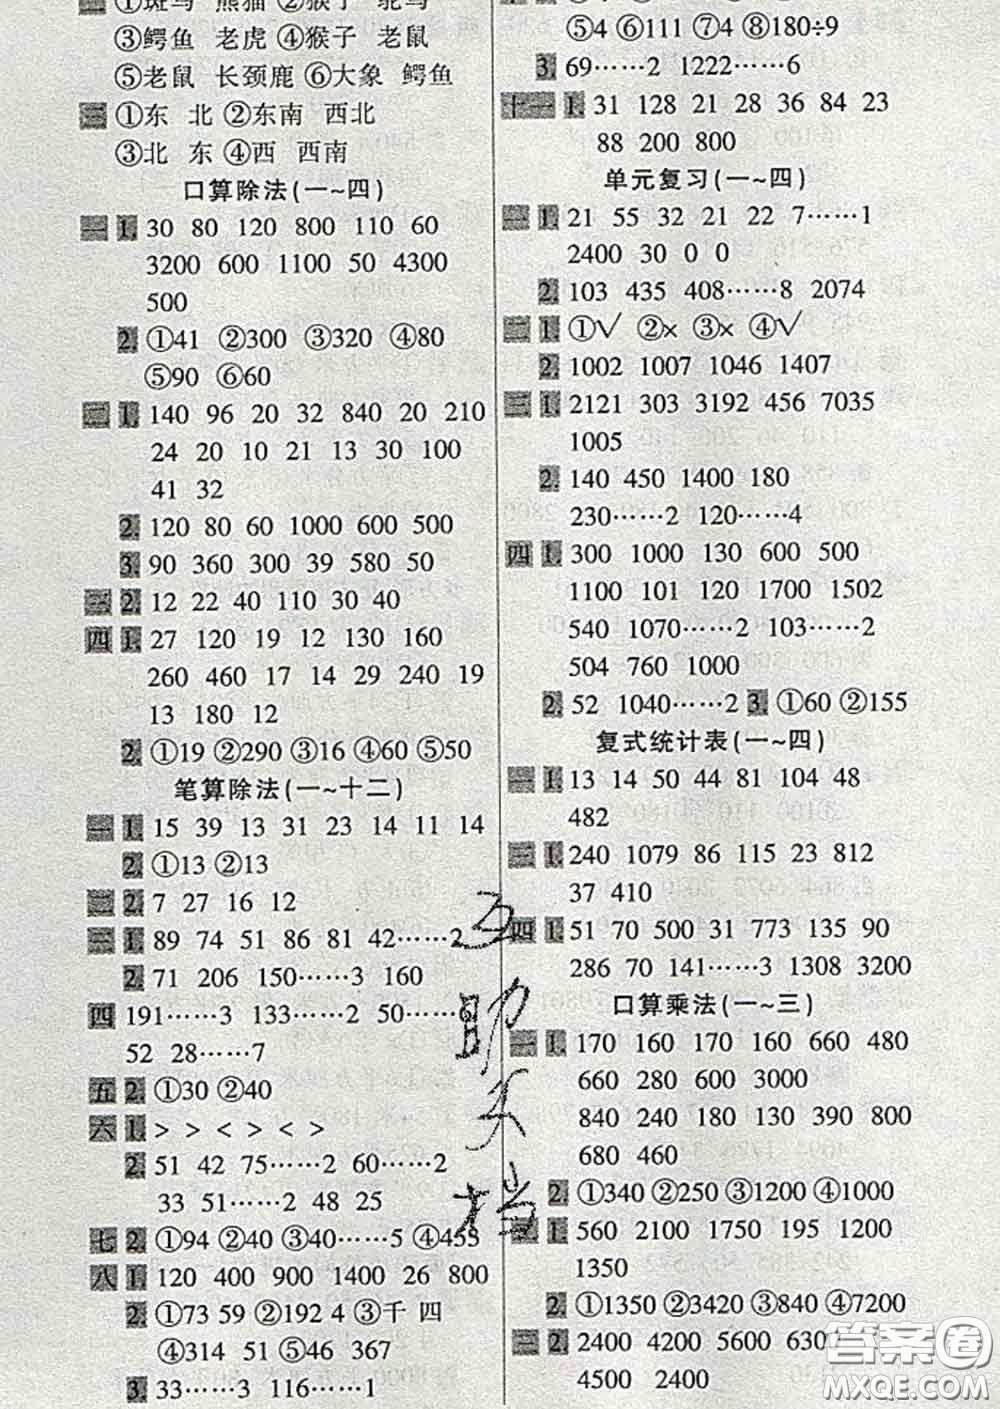 ①斑马 熊猫 ②猴子 鸵鸟
③鳄鱼 老虎 ④猴子 老鼠
⑤老鼠 长颈鹿 ⑥大象 鳄鱼
三 ①东 北 ②东南 西北
③北 东 ④西 西南
口算除法(一~四)
一 1. 30 80 120 800 110 60
3200 600 1100 50 4300
500
2. ①41 ②300 ③320 ④80
⑤90 ⑥60
二 1. 140 96 20 32 840 20 210
24 20 10 21 13 30 100
41 32
2. 120 80 60 1000 600 500
3. 90 360 300 39 580 50
三 2. 12 22 40 110 30 40
四 1. 27 120 19 12 130 160
260 460 17 14 29 240 19
13 180 12
2. ①19 ②290 ③16 ④60 ⑤50
笔算除法(一~十二)
一 1. 15 39 13 31 23 14 11 14
2. ①13 ②13
二 2. 7 27 16 12
三 1. 89 74 51 86 81 42……2
2. 71 206 150……3 160
四 191……3 133……2 50……6
52 28……7
五 2. ①30 ②40
六 1. > > < > < >
2. 51 42 75……2 60……2
33 51……2 48 25
七 2. ①94 ②40 ③40……5 ④453
八 1. 120 400 900 1400 26 800
2. ①73 59 ②192 4 ③千 四
④314 51 ⑤46 367
3. 33……3 116……1
⑤4 ⑥111 ⑦4 ⑧180÷9
3. 69……2 1222……6
十一 1. 31 128 21 28 36 84 23
88 200 800
单元复习(一~四)
一 1. 21 55 32 21 22 7……1
2400 30 0 0
2. 103 435 408……8 2074
二 1. ①√ ②× ③× ④√
2. 1002 1007 1046 1407
三 1. 2121 303 3192 456 7035
1005
2. 140 450 1400 180
230……2 120……4
四 1. 300 1000 130 600 500
1100 101 120 1700 1502
540 1070……2 103……2
504 760 1000
2. 52 1040……2 3. ①60 ②155
复式统计表(一~四)
一 1. 13 14 50 44 81 104 48
482
三 1. 240 1079 86 115 23 812
37 410
四 1. 51 70 500 31 773 135 90
286 70 141……3 1308 3200
口算乘法(一~三)
一 1. 170 160 170 160 660 480
660 280 600 3000
840 240 180 130 390 800
680 460
2. ①340 ②250 ③1200 ④1000
二 1. 560 2100 1750 195 1200
1350
2. ①1350 ②3420 ③840 ④7200
三 2. 2400 4200 5600 6300
4500 2400
答案圈
MXQE.COM